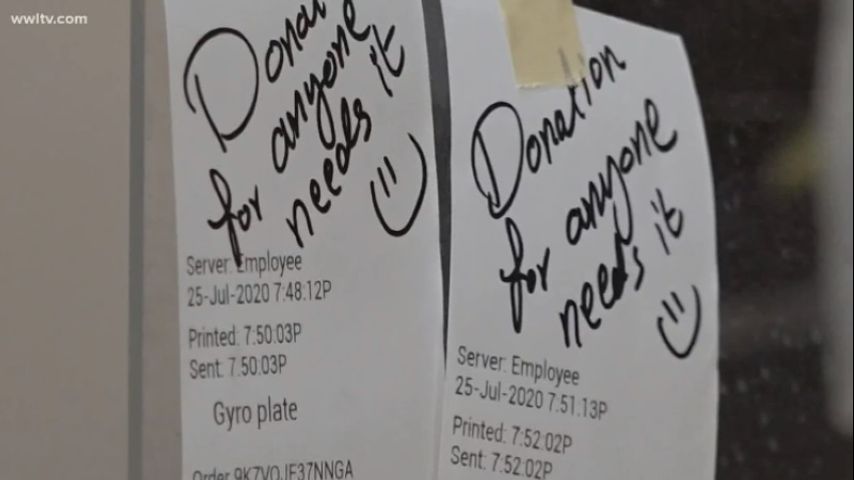 wwltv.com
Donat
for anyone
needs it
Server: Employee
25-Jul-2020 7:48:12P
Printed: 7:50:03P
Sent: 7:50:03P
Gyro plate
Donation
for anyone
needs it
Server: Employee
25-Jul-2020 7:51:13P
Printed: 7:52:02P
Sent: 7:52:02P